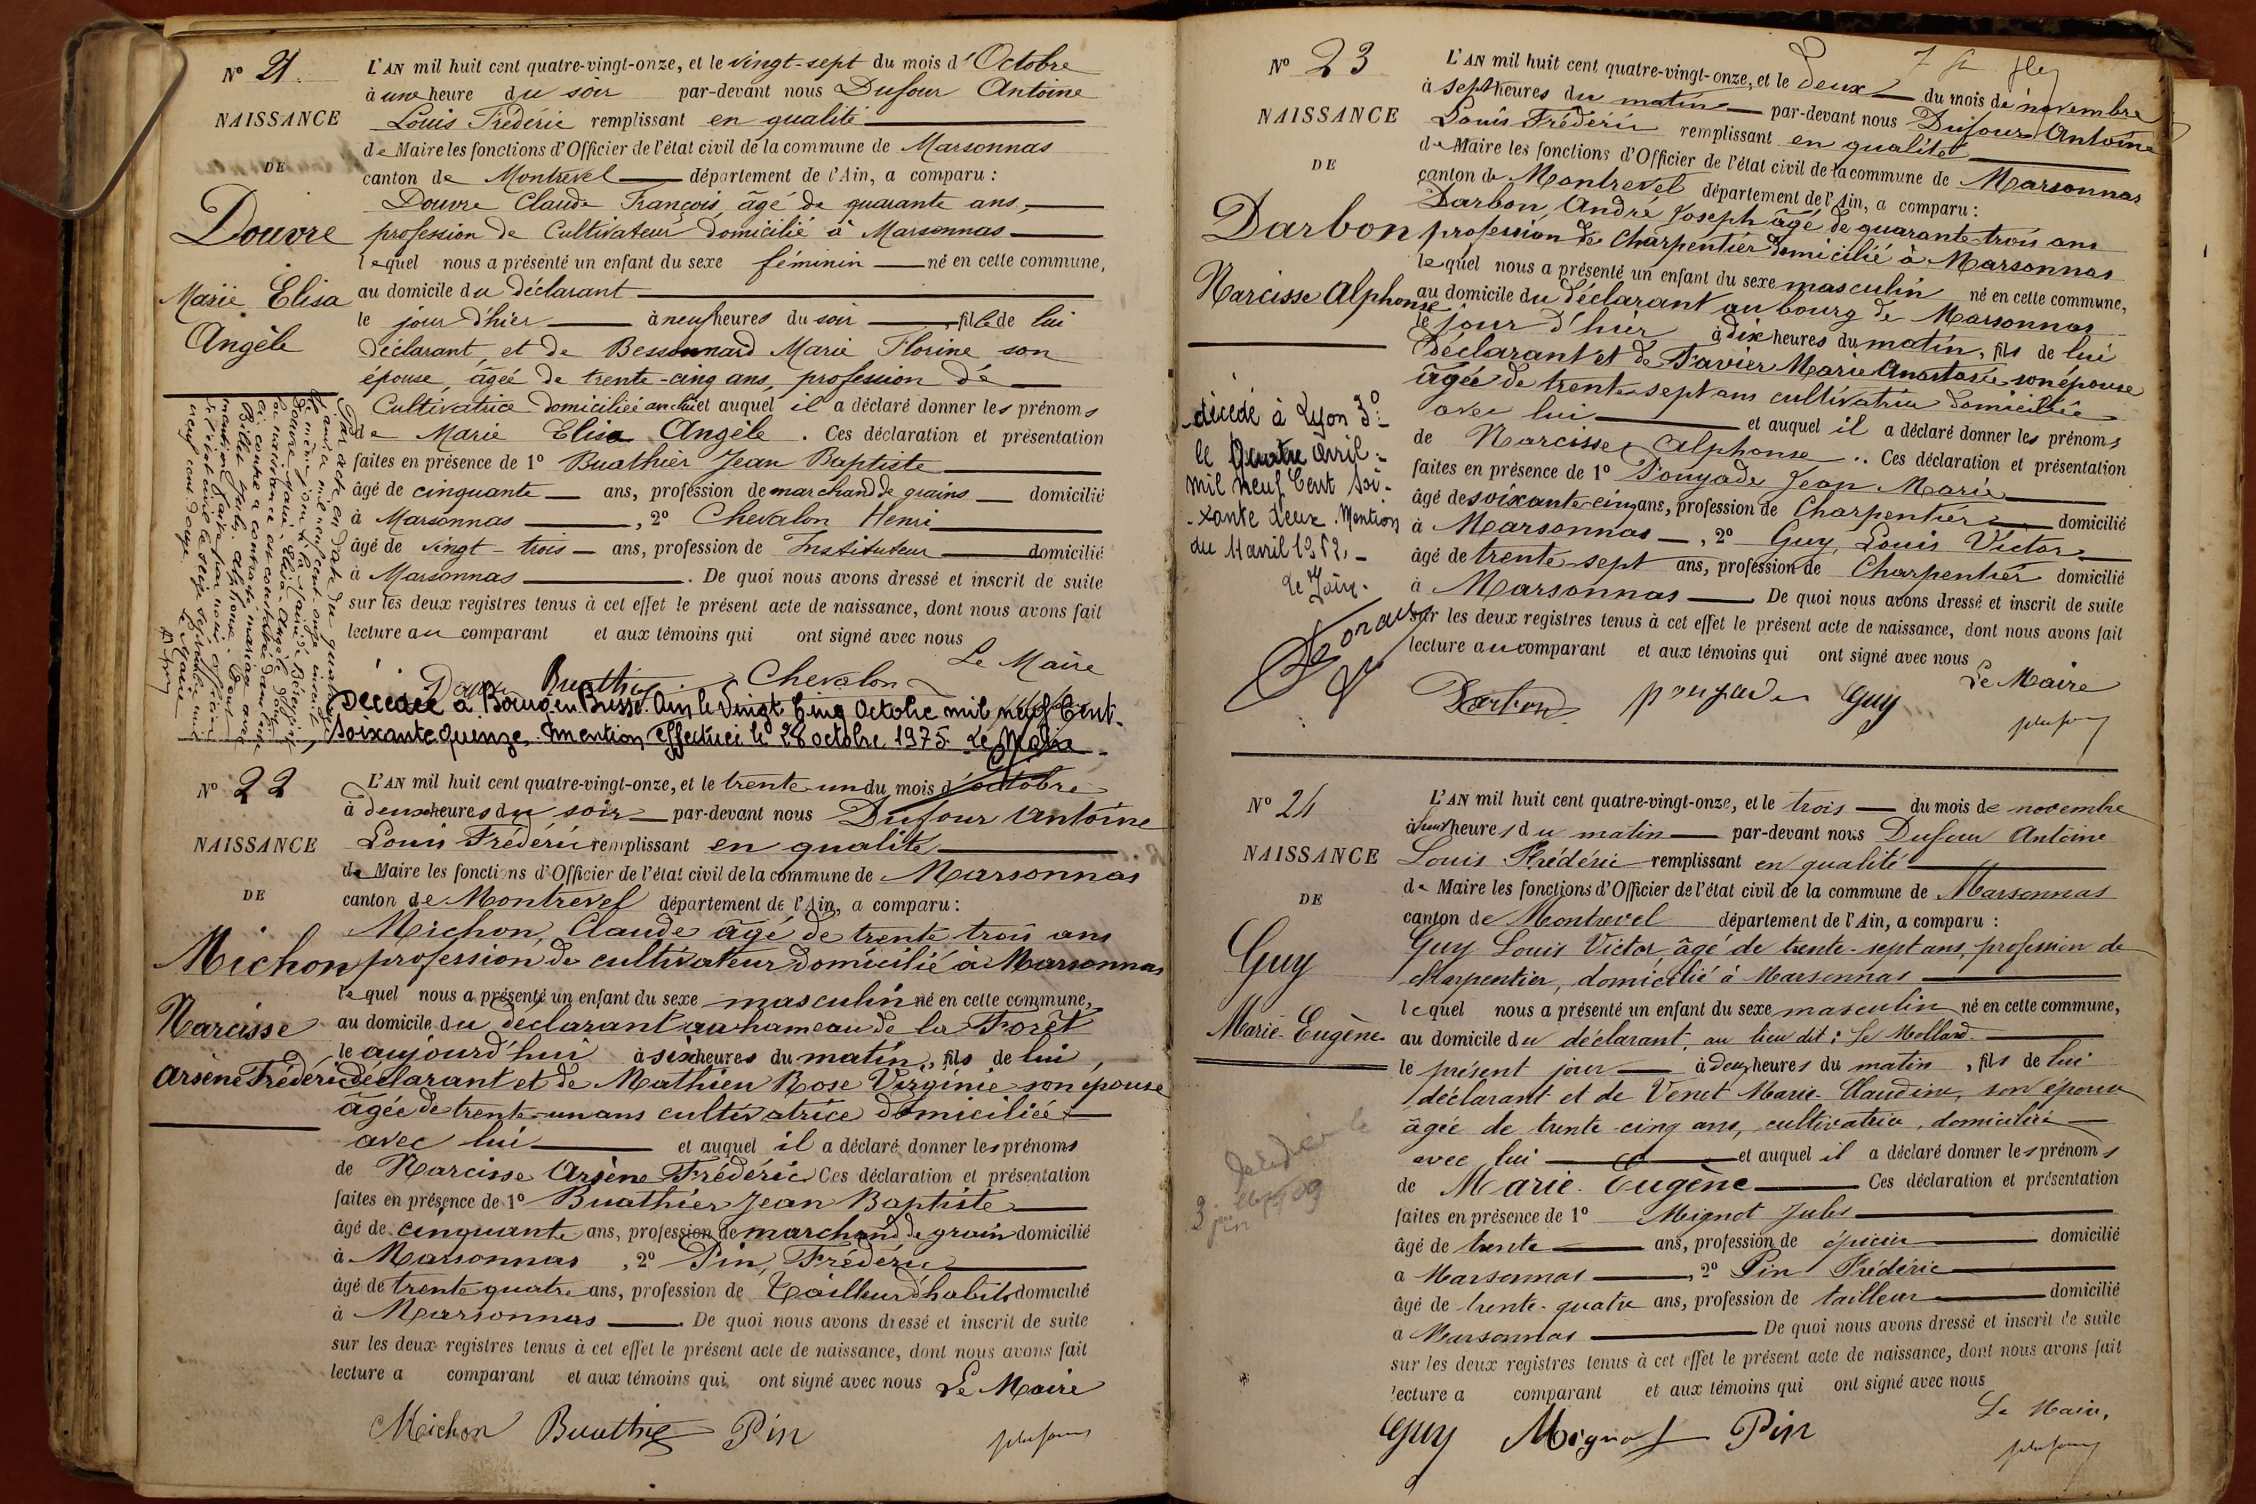 N° 21.
NAISSANCE
DE
Douvre
Marie Elisa
Angèle
L'AN mil huit cent quatre-vingt-onze, et le vingt-sept du mois d'Octobre
à une heure du soir par-devant nous Dufour Antoine
Louis Frédéric remplissant en qualité
de Maire les fonctions d'Officier de l'état civil de la commune de Marsonnas
canton de Montrevel département de l'Ain, a comparu :
Douvre Claude François, âgé de quarante ans,
profession de Cultivateur domicilié à Marsonnas
lequel nous a présenté un enfant du sexe féminin né en cette commune,
au domicile du déclarant
le jour d'hier à neuf heures du soir, fille de lui
déclarant, et de Bessonnard Marie Florine son
épouse, âgée de trente-cinq ans, profession de
Cultivatrice domiciliée avec lui et auquel il a déclaré donner les prénoms
de Marie Elisa Angèle. Ces déclaration et présentation
faites en présence de 1° Buathier Jean Baptiste
âgé de cinquante ans, profession de marchand de grains domicilié
à Marsonnas, 2° Chevalon Henri
âgé de vingt-trois ans, profession de Instituteur domicilié
à Marsonnas. De quoi nous avons dressé et inscrit de suite
sur les deux registres tenus à cet effet le présent acte de naissance, dont nous avons fait
lecture au comparant et aux témoins qui ont signé avec nous
Le Maire
Douvre Buathier Chevalon
Par acte en date du quatre
mil neuf cent onze inscrit
Douvre Marie Elisa Angèle dont
la naissance est constatée dans l'acte
ci-contre a contracté mariage avec
Billet Jules Alphonse. Dont
mention faite par nous officier
de l'état civil le seize septembre mil
neuf cent douze.
Le Maire
Décédée à Bourg en Bresse Ain le Vingt Cinq Octobre mil neuf Cent
soixante quinze. Mention effectuée le 28 octobre 1975. Le Maire
N° 22
NAISSANCE
DE
Michon
Narcisse
Arsène Frédéric
L'AN mil huit cent quatre-vingt-onze, et le trente un du mois d'octobre
à deux heures du soir par-devant nous Dufour Antoine
Louis Frédéric remplissant en qualité
de Maire les fonctions d'Officier de l'état civil de la commune de Marsonnas
canton de Montrevel département de l'Ain, a comparu :
Michon, Claude âgé de trente trois ans
profession de cultivateur domicilié à Marsonnas
lequel nous a présenté un enfant du sexe masculin né en cette commune,
au domicile du déclarant au hameau de la Forêt
le aujourd'hui à six heures du matin, fils de lui
déclarant et de Mathieu Rose Virginie son épouse
âgée de trente-un ans cultivatrice domiciliée
avec lui et auquel il a déclaré donner les prénoms
de Narcisse Arsène Frédéric Ces déclaration et présentation
faites en présence de 1° Buathier Jean Baptiste
âgé de cinquante ans, profession de marchand de grain domicilié
à Marsonnas, 2° Pin, Frédéric
âgé de trente quatre ans, profession de Tailleur d'habits domicilié
à Marsonnas. De quoi nous avons dressé et inscrit de suite
sur les deux registres tenus à cet effet le présent acte de naissance, dont nous avons fait
lecture a comparant et aux témoins qui ont signé avec nous Le Maire
Michon Buathier Pin
N° 23
NAISSANCE
DE
Darbon
Narcisse Alphonse
L'AN mil huit cent quatre-vingt-onze, et le deux du mois de novembre
à sept heures du matin par-devant nous Dufour Antoine
Louis Frédéric remplissant en qualité
de Maire les fonctions d'Officier de l'état civil de la commune de Marsonnas
canton de Montrevel département de l'Ain, a comparu :
Darbon, André Joseph âgé de quarante trois ans
profession de Charpentier domicilié à Marsonnas
lequel nous a présenté un enfant du sexe masculin né en cette commune,
au domicile du déclarant au bourg de Marsonnas
le jour d'hier à dix heures du matin, fils de lui
déclarant et de Favier Marie Anastasie son épouse
âgée de trente sept ans cultivatrice domiciliée
avec lui et auquel il a déclaré donner les prénoms
de Narcisse Alphonse. Ces déclaration et présentation
faites en présence de 1° Pougade Jean Marie
âgé de soixante cinq ans, profession de Charpentier domicilié
à Marsonnas, 2° Guy, Louis Victor
âgé de trente sept ans, profession de Charpentier domicilié
à Marsonnas. De quoi nous avons dressé et inscrit de suite
sur les deux registres tenus à cet effet le présent acte de naissance, dont nous avons fait
lecture au comparant et aux témoins qui ont signé avec nous
Le Maire
Darbon pougade Guy
décédé à Lyon 3°
le Quatre avril
mil neuf Cent soi-
xante deux. Mention
du 11 avril 1962.
Le Maire
N° 24
NAISSANCE
DE
Guy
Marie-Eugène
L'AN mil huit cent quatre-vingt-onze, et le trois du mois de novembre
heures du matin par-devant nous Dufour Antoine
Louis Frédéric remplissant en qualité
de Maire les fonctions d'Officier de l'état civil de la commune de Marsonnas
canton de Montrevel département de l'Ain, a comparu :
Guy Louis Victor âgé de trente-sept ans, profession de
charpentier, domicilié à Marsonnas
lequel nous a présenté un enfant du sexe masculin né en cette commune,
au domicile du déclarant, au lieu dit : Le Mollard
le présent jour à deux heures du matin, fils de lui
déclarant et de Venet Marie-Claudine, son épouse
âgée de trente-cinq ans, cultivatrice, domiciliée
avec lui et auquel il a déclaré donner les prénoms
de Marie-Eugène Ces déclaration et présentation
faites en présence de 1° Mignot Jules
âgé de trente ans, profession de épicier domicilié
a Marsonnas, 2° Pin Frédéric
âgé de trente-quatre ans, profession de tailleur domicilié
a Marsonnas De quoi nous avons dressé et inscrit de suite
sur les deux registres tenus à cet effet le présent acte de naissance, dont nous avons fait
lecture a comparant et aux témoins qui ont signé avec nous
Le Maire,
Guy Mignot Pin